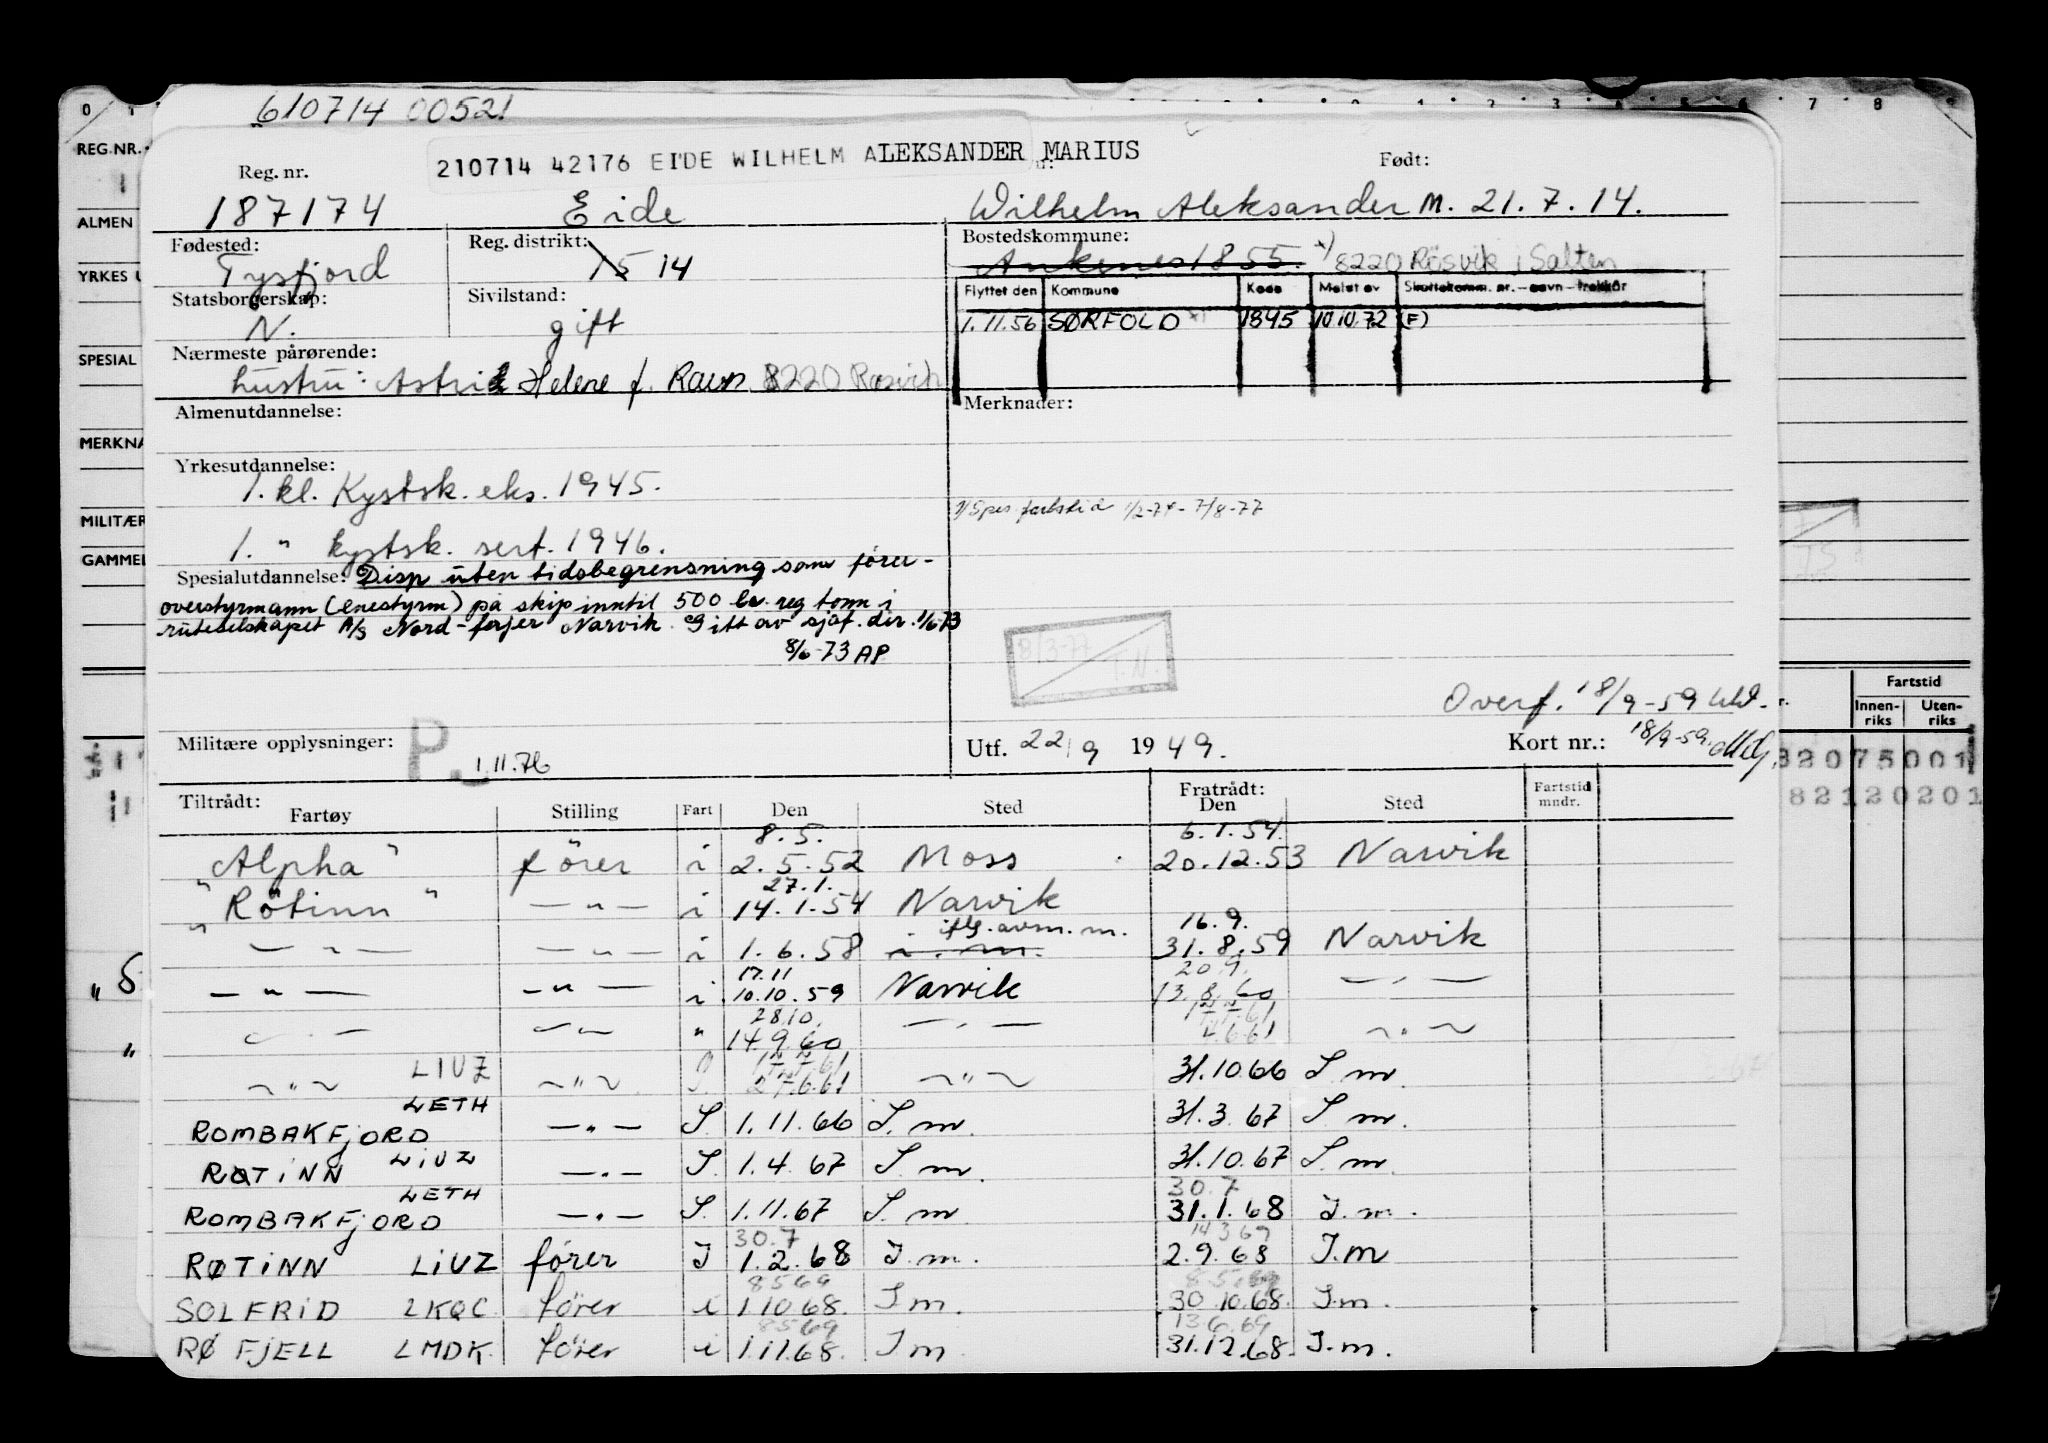 610714 00521
210714 42176 EIDE WILHELM ALEKSANDER MARIUS
Reg. nr. Født:
187174 Eide Wilhelm Aleksander M. 21.7.14.
Fødested: Reg. distrikt: Bostedskommune:
Tysfjord 15 14 Ankenes 1855. x) 8220 Røsvik i Salten
Statsborgerskap: Sivilstand:
N. gift
Flyttet den Kommune Kode Meldt av Skattekomm. nr. - navn - trekkår
1.11.56 SØRFOLD 1845 10.10.72 (F)
Nærmeste pårørende:
hustru: Astrid Helene f. Raun 8220 Røsvik
Almenutdannelse: Merknader:
Yrkesutdannelse:
1. kl. Kystsk. eks. 1945.
1/Spes fartstid 1/2-74 - 7/8-77
1. " kystsk. sert. 1946.
Spesialutdannelse: Disp uten tidsbegrensning som fører-
overstyrmann (enestyrm) på skip inntil 500 br. reg tonn i
ruteselskapet A/S Nord-ferjer Narvik. Gitt av sjøf. dir. 1/6-73
8/6-73 AP
8/3-77 T.N.
Overf. 18/9-59
Militære opplysninger: P. 1.11.76
Utf. 22/9 1949. Kort nr.: 18/9-59.
Tiltrådt: Fartøy Stilling Fart Den Sted Fratrådt: Den Sted Fartstid mndr.
8.5. 6.1.54.
"Alpha" fører i 2.5.52 Moss 20.12.53 Narvik
27.1.
"Rötinn" — " — i 14.1.54 Narvik
iflg. avm. m. 16.9.
— " — — " — i 1.6.58 i. m. 31.8.59 Narvik
17.11 20.9.
— " — — " — i 10.10.59 Narvik 13.8.60 — " —
28.10.
— " — — " — " 14.9.60 — " — 4.6.61 — " —
— " — LIUZ — " — 27.6.61 — " — 31.10.66 I. m.
ROMBAKFJORD LETH — " — I. 1.11.66 I. m. 31.3.67 I. m.
RØTINN LIUZ — " — I. 1.4.67 I. m. 31.10.67 I. m.
30.7
ROMBAKFJORD LETH — " — I. 1.11.67 I. m. 31.1.68 I. m.
30.7 14.3.69
RØTINN LIUZ fører I 1.2.68 I. m. 2.9.68 I. m
8569 8.5.69
SOLFRID LKQC fører i 1.10.68. I m. 30.10.68. I. m.
8569 13.6.69
RØ FJELL LMDK fører i 1.11.68. I m. 31.12.68. I. m.
0 1 7 8
REG. NR.
ALMEN
YRKES U
SPESIAL
MERKNA
MILITÆR
GAMMEL
Fartstid
Innen-riks Uten-riks
82075001
821120201